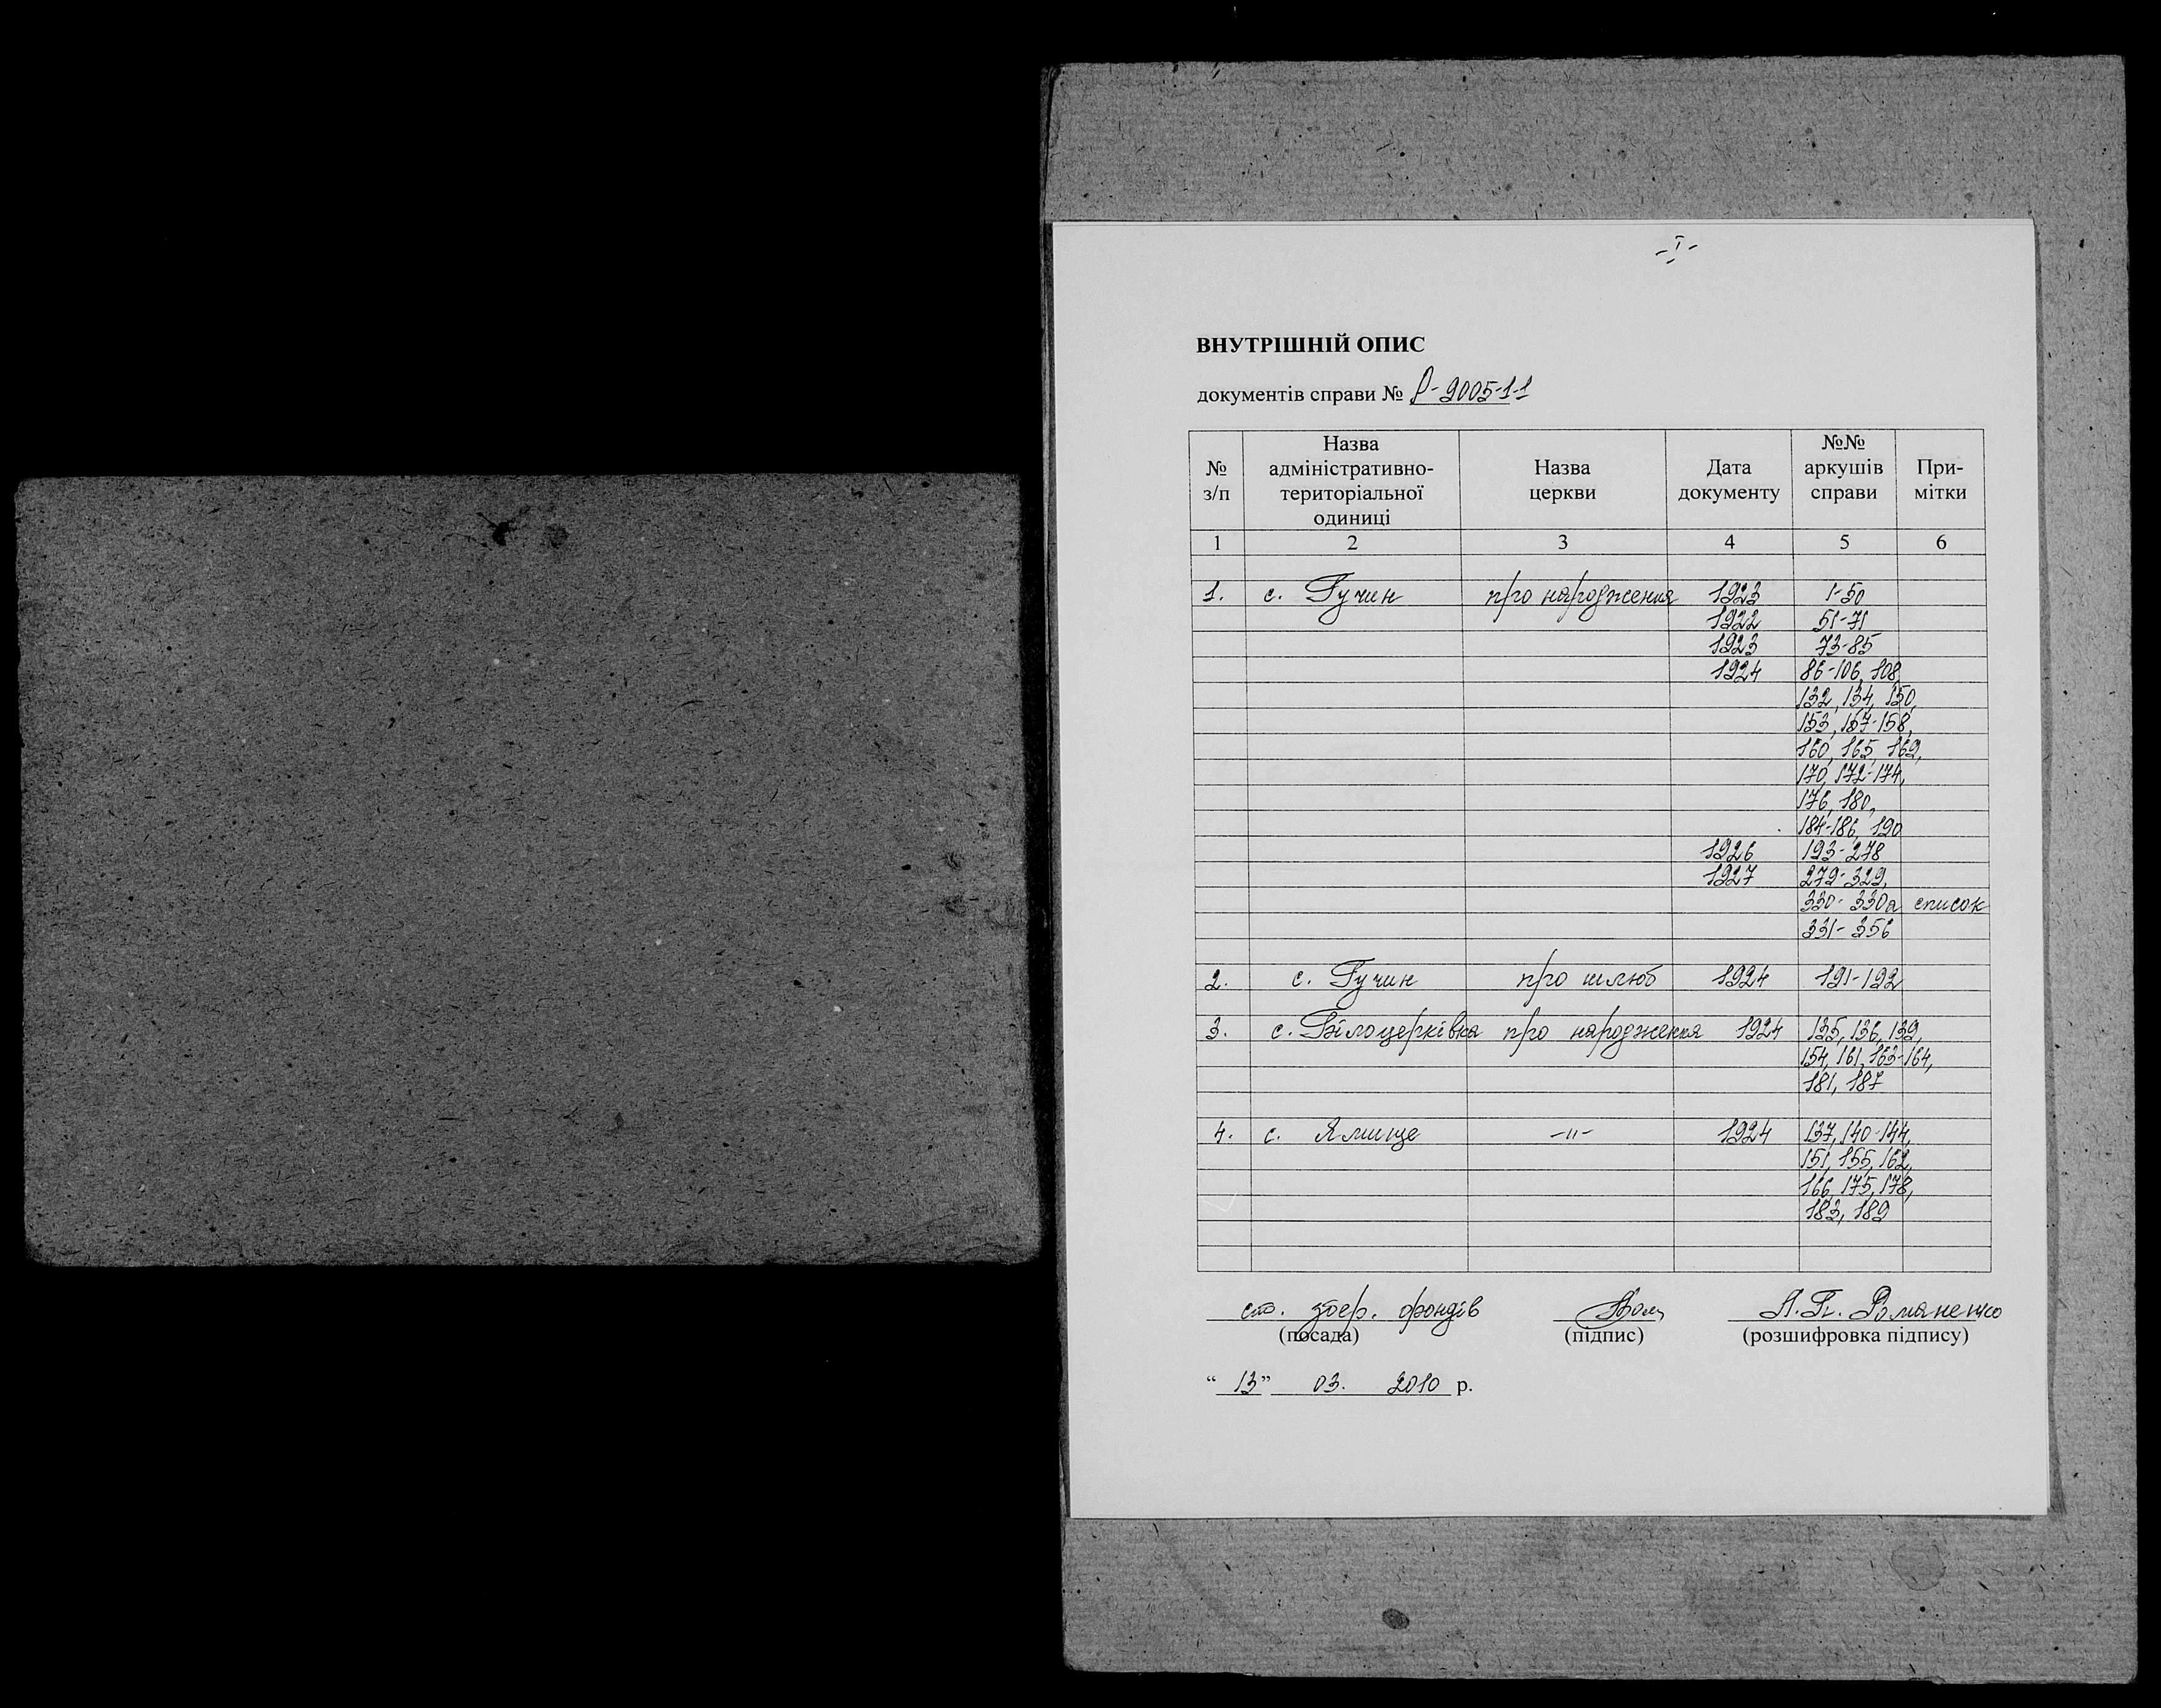 -I-
ВНУТРІШНІЙ ОПИС
документів справи № Р-9005-1-1
№ з/п
Назва адміністративно-територіальної одиниці
Назва церкви
Дата документу
№№ аркушів справи
При-мітки
1 2 3 4 5 6
1. с. Гучин про народження 1923 1-50
1922 51-71
1923 73-85
1924 86-106, 108,
132, 134, 150,
153, 157-158,
160, 165, 169,
170, 172-174,
176, 180,
184-186, 190
1926 193-278
1927 279-329,
330-330а список
331-356
2. с. Гучин про шлюб 1924 191-192
3. с. Білоцерківка про народження 1924 135, 136, 139,
154, 161, 163-164,
181, 187
4. с. Ялище -"- 1924 137, 140-144,
151, 155, 162,
166, 175, 178,
183, 189
ст. збер. фондів Романенко
(посада) (підпис) (розшифровка підпису)
“ 13 ” 03. 2010 р.